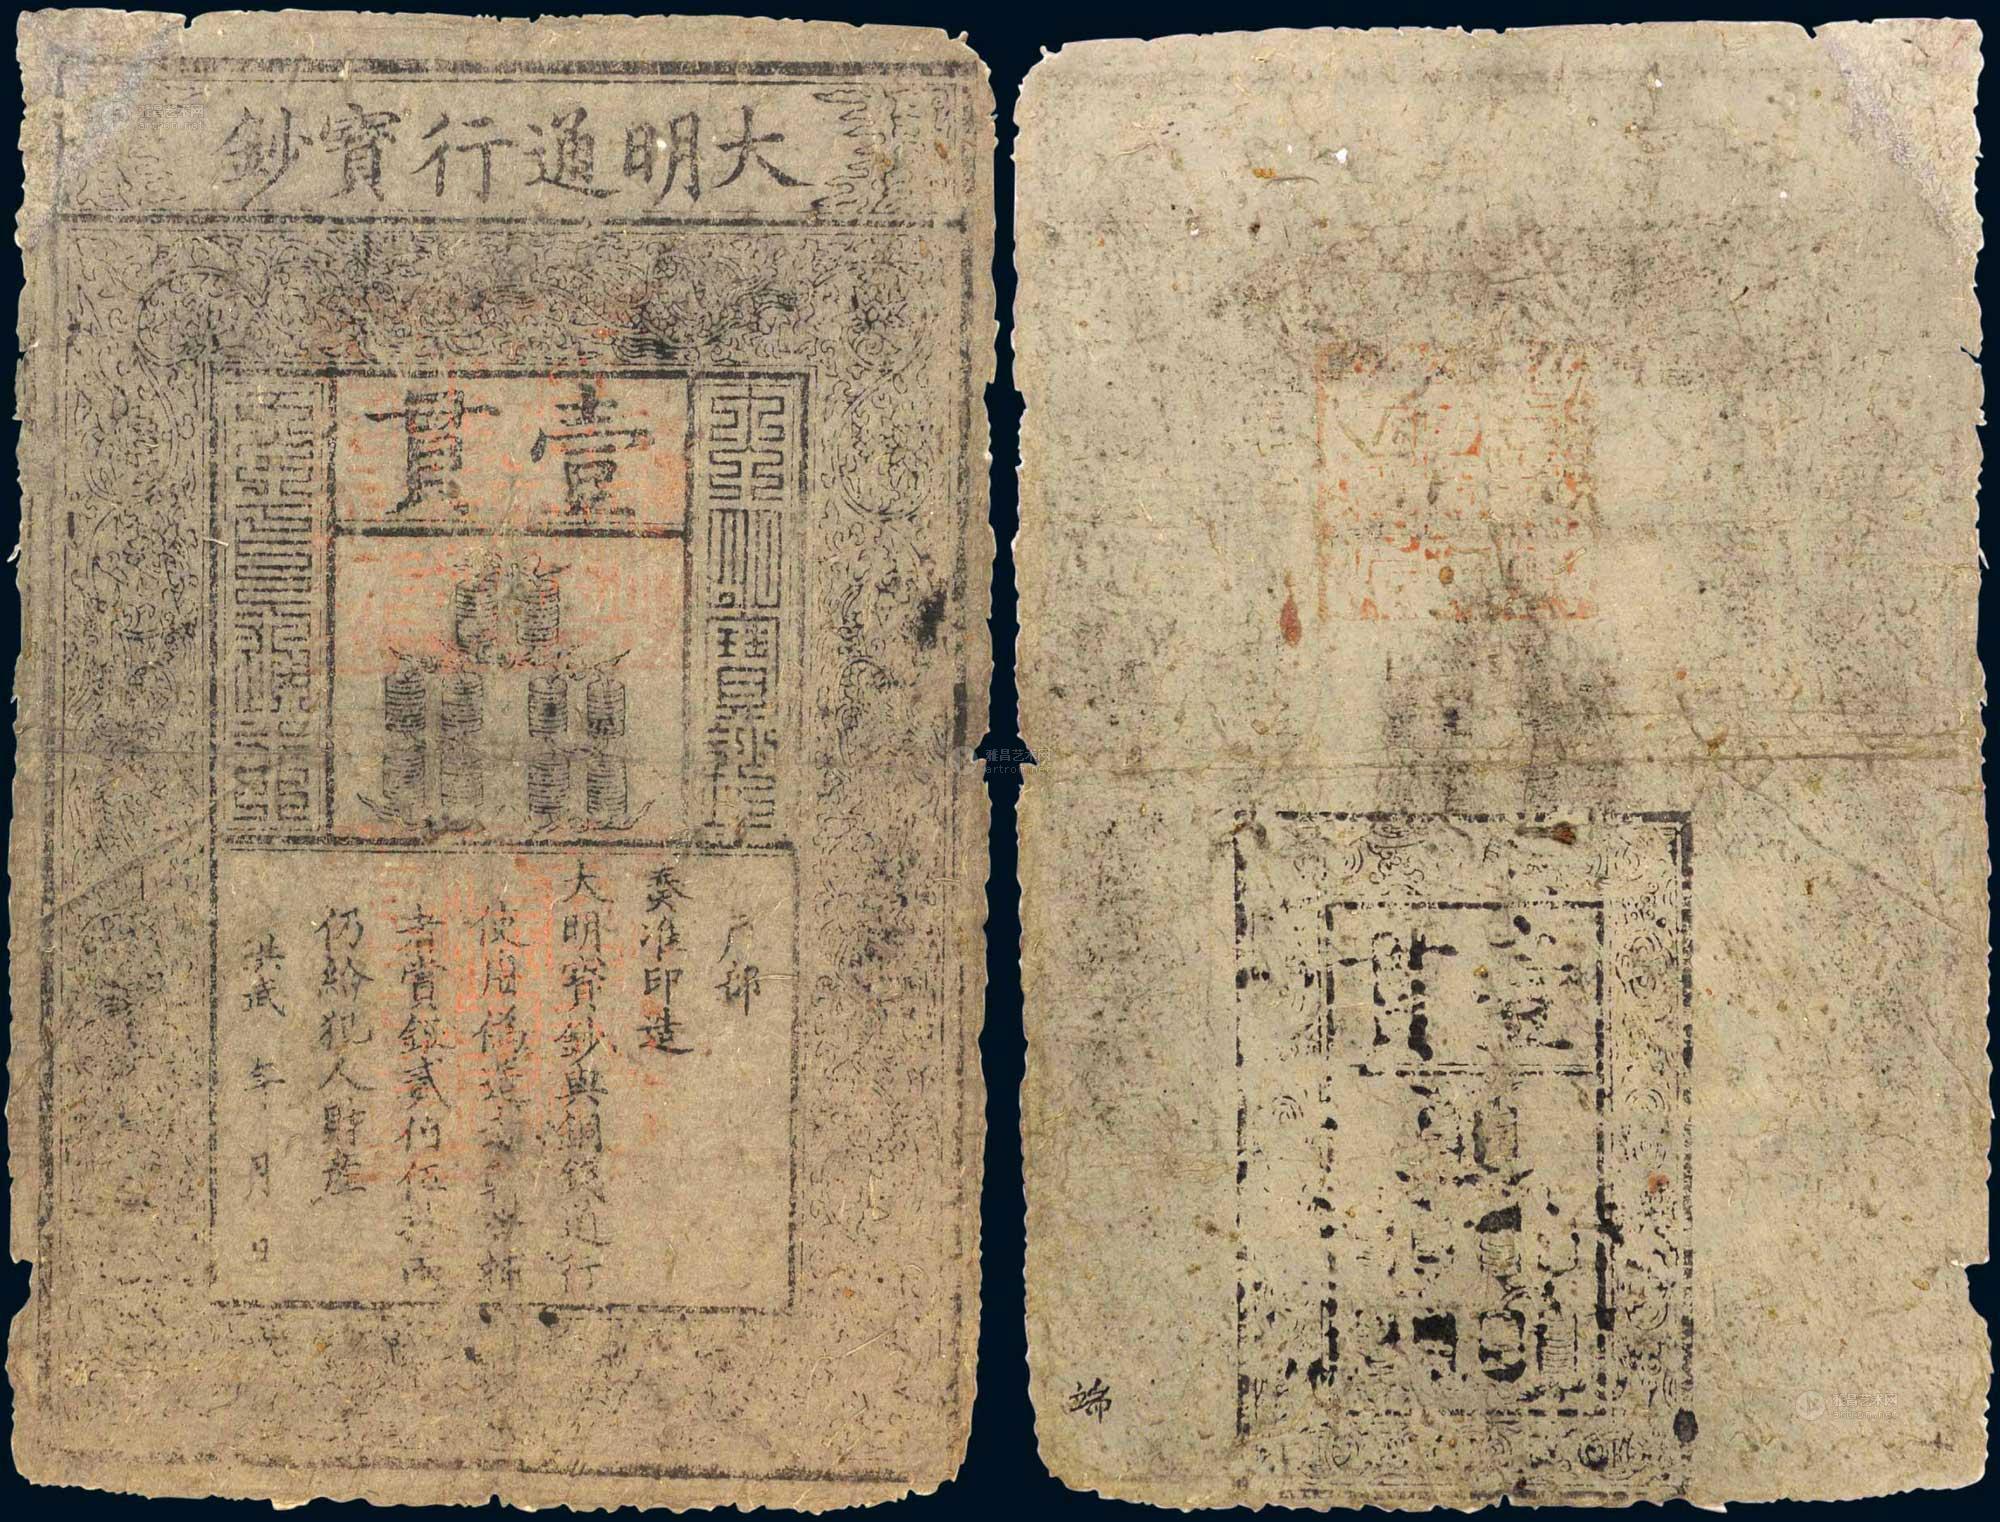 大明通行寶鈔
大明寶鈔
壹貫
天下通行
戶部
奏准印造
大明寶鈔與銅錢通行
使用偽造者斬告捕
者賞銀貳伯伍拾兩
仍給犯人財產
洪武 年 月 日
端
雅昌艺术网
artron.net
雅昌艺术网
artron.net
雅昌艺术网
artron.net